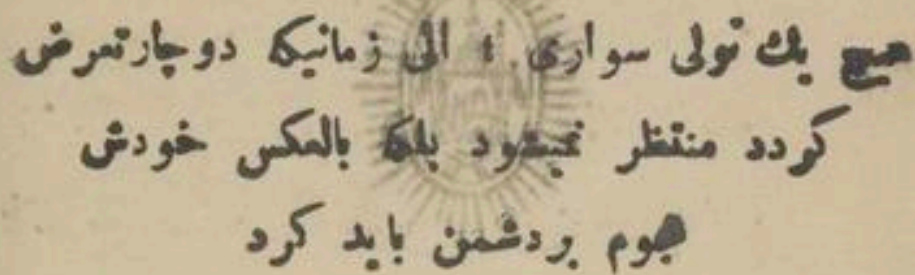 هیچ یك تولی سواری ؛ الی زمانیکه دوچار تعرض
گردد منتظر نمیشود بلکه بالعکس خودش
هجوم بر دشمن باید کرد